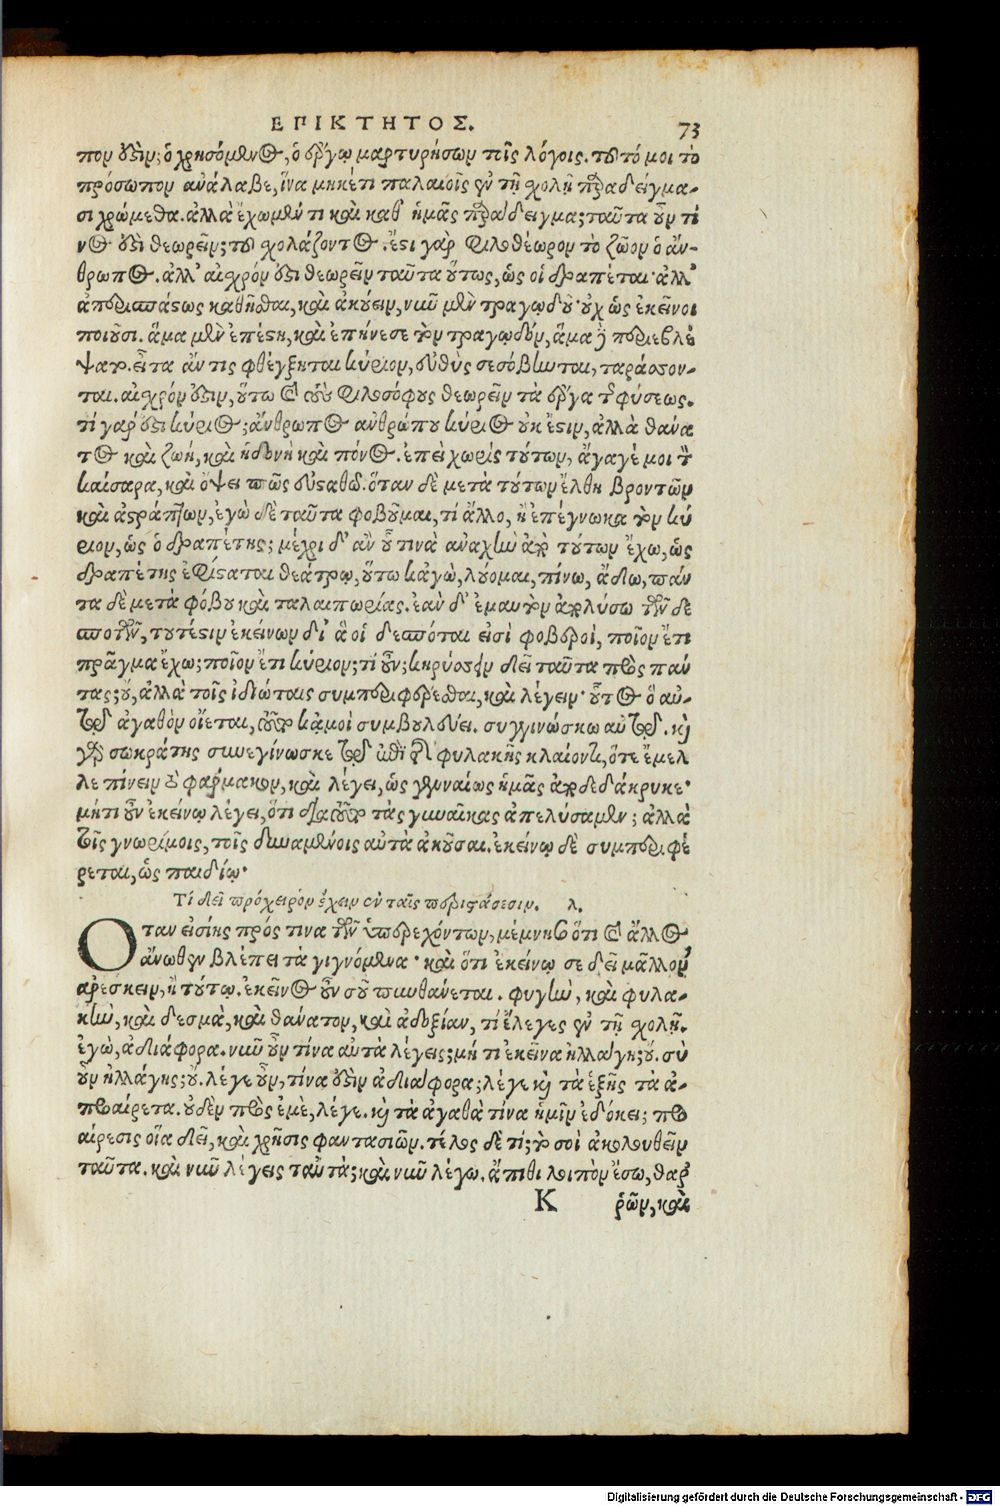 ΕΠΙΚΤΗΤΟΣ. 73
που ὅϛιν; ὁ χρησόμενος, ὁ ἔργῳ μαρτυρήσων τοῖς λόγοις. τοῦτό μοι τὸ
πρόσωπον ἀνάλαβε, ἵνα μηκέτι παλαιοῖς ἐν τῇ χολῇ παραδείγμα-
σι χρώμεθα. ἀλλὰ ἔχωμέν τι καὶ καθ᾽ ἡμᾶς παράδειγμα; ταῦτα οὖν τί
νος ὅϛὶ θεωρεῖν; τοῦ χολάζοντος. ἔϛι γὰρ φιλοθέωρον τὸ ζῶον ὁ ἄν-
θρωπος. ἀλλ᾽ αἰχρόν ὅϛι θεωρεῖν ταῦτα οὕτως, ὡς οἱ δραπέται· ἀλλ᾽
ἀπεριασάϛως καθῆσθαι, καὶ ἀκούειν, νῦν μὲν τραγῳδοῦ· οὐχ ὡς ἐκεῖνοι
ποιοῦσι. ἅμα μὲν ἐπέϛη, καὶ ἐπήνεσε τὸν τραγῳδόν, ἅμα δὲ περιεβλέ
ψατο. εἶτα ἄν τις φθέγξηται κύριον, εὐθὺς σεσόβηνται, ταράσσον-
ται. αἰχρόν ὅϛιν, οὕτω καὶ τοὺς φιλοσόφους θεωρεῖν τὰ ἔργα τῆς φύσεως.
τί γάρ ὅϛι κύριος; ἄνθρωπος ἀνθρώπου κύριος οὐκ ἔϛιν, ἀλλὰ θάνα
τος καὶ ζωή, καὶ ἡδονὴ καὶ πόνος. ἐπεὶ χωρὶς τούτων, ἄγαγέ μοι τὸν
καίσαρα, καὶ ὄψει πῶς εὐϛαθῶ. ὅταν δὲ μετὰ τούτων ἔλθῃ βροντῶν
καὶ ἀϛράπτων, ἐγὼ δὲ ταῦτα φοβοῦμαι, τί ἄλλο, ἢ ἐπέγνωκα τὸν κύ
ριον, ὡς ὁ δραπέτης; μέχρι δ᾽ ἂν οὗ τινὰ ἀναχὴν ἀπὸ τούτων ἔχω, ὡς
δραπέτης ἐφίϛαται θεάτρῳ, οὕτω κἀγώ, λούομαι, πίνω, ἄδω, πάν
τα δὲ μετὰ φόβου καὶ ταλαιπωρίας. ἐὰν δ᾽ ἐμαυτὸν ἀπολύσω τῶν δε
σποτῶν, τουτέϛιν ἐκείνων δι᾽ ἃ οἱ δεσπόται εἰσὶ φοβεροί, ποῖον ἔτι
πρᾶγμα ἔχω; ποῖον ἔτι κύριον; τί οὖν; κηρύσσειν δεῖ ταῦτα πρὸς πάν
τας; οὔ, ἀλλὰ τοῖς ἰδιώταις συμπεριφέρεσθαι, καὶ λέγειν· οὗτος ὃ αὑ-
τῷ ἀγαθὸν οἴεται, τοῦτο κἀμοὶ συμβουλεύει. συγγινώσκω αὐτῷ. καὶ
γὰρ σωκράτης συνεγίνωσκε τῷ ἐπὶ τῆς φυλακῆς κλαίοντι, ὅτε ἔμελ
λε πίνειν τὸ φάρμακον, καὶ λέγει, ὡς γενναίως ἡμᾶς ἀποδεδάκρυκε·
μήτι οὖν ἐκείνῳ λέγει, ὅτι διὰ τοῦτο τὰς γυναῖκας ἀπελύσαμεν; ἀλλὰ
τοῖς γνωρίμοις, τοῖς δυναμένοις αὐτὰ ἀκοῦσαι. ἐκείνῳ δὲ συμπεριφέ
ρεται, ὡς παιδίῳ·
Τί δεῖ πρόχειρον ἔχειν ἐν ταῖς περιϛάσεσιν. λ.
Οταν εἰσίῃς πρός τινα τῶν ὑπερεχόντων, μέμνησο ὅτι καὶ ἄλλος
ἄνωθεν βλέπει τὰ γιγνόμενα· καὶ ὅτι ἐκείνῳ σε δεῖ μᾶλλον
ἀρέσκειν, ἢ τούτῳ. ἐκεῖνος οὖν σοῦ πυνθάνεται. φυγὴν, καὶ φυλα-
κὴν, καὶ δεσμὰ, καὶ θάνατον, καὶ ἀδοξίαν, τί ἔλεγες ἐν τῇ χολῇ.
ἐγὼ, ἀδιάφορα. νῦν οὖν τίνα αὐτὰ λέγεις; μή τι ἐκεῖνα ἠλλάγη; οὔ. σὺ
οὖν ἠλλάγης; οὔ. λέγε οὖν, τίνα ὅϛὶν ἀδιάφορα; λέγε καὶ τὰ ἑξῆς τὰ ἀ-
προαίρετα. οὐδὲν πρὸς ἐμὲ, λέγε. καὶ τὰ ἀγαθὰ τίνα ἡμῖν ἐδόκει; προ
αίρεσις οἵα δεῖ, καὶ χρῆσις φαντασιῶν. τέλος δὲ τί; τὸ σοὶ ἀκολουθεῖν
ταῦτα. καὶ νῦν λέγεις ταὐτά; καὶ νῦν λέγω. ἄπιθι λοιπὸν ἔσω, θαῤ
K ῥῶν, καὶ
Digitalisierung gefördert durch die Deutsche Forschungsgemeinschaft - DFG